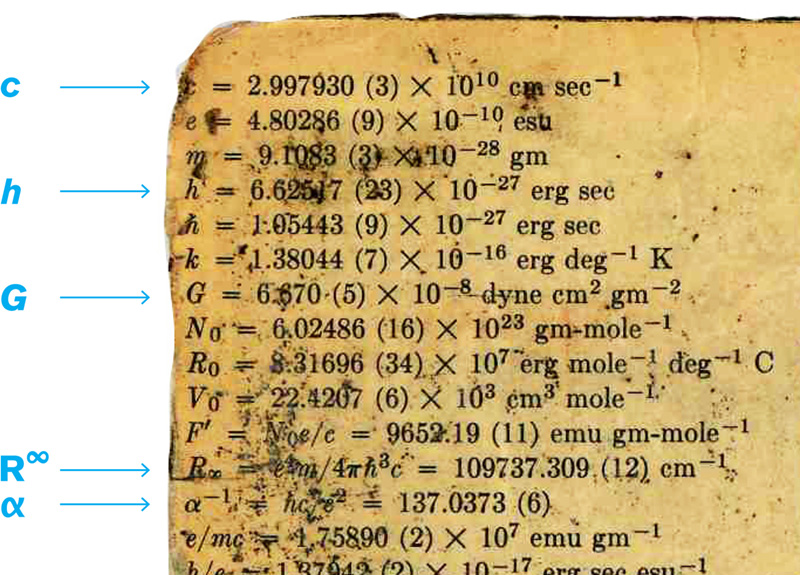 c = 2.997930 (3) × 10¹⁰ cm sec⁻¹
e = 4.80286 (9) × 10⁻¹⁰ esu
m = 9.1083 (3) × 10⁻²⁸ gm
h h = 6.62517 (23) × 10⁻²⁷ erg sec
ħ = 1.05443 (9) × 10⁻²⁷ erg sec
k = 1.38044 (7) × 10⁻¹⁶ erg deg⁻¹ K
G G = 6.670 (5) × 10⁻⁸ dyne cm² gm⁻²
N₀ = 6.02486 (16) × 10²³ gm-mole⁻¹
R₀ = 8.31696 (34) × 10⁷ erg mole⁻¹ deg⁻¹ C
V₀ = 22.4207 (6) × 10³ cm³ mole⁻¹
F′ = N₀e/c = 9652.19 (11) emu gm-mole⁻¹
R∞ R∞ = e⁴m/4πħ³c = 109737.309 (12) cm⁻¹
α α⁻¹ = ħc/e² = 137.0373 (6)
e/mc = 1.75890 (2) × 10⁷ emu gm⁻¹
h/e = 1.37942 (2) × 10⁻¹⁷ erg sec esu⁻¹